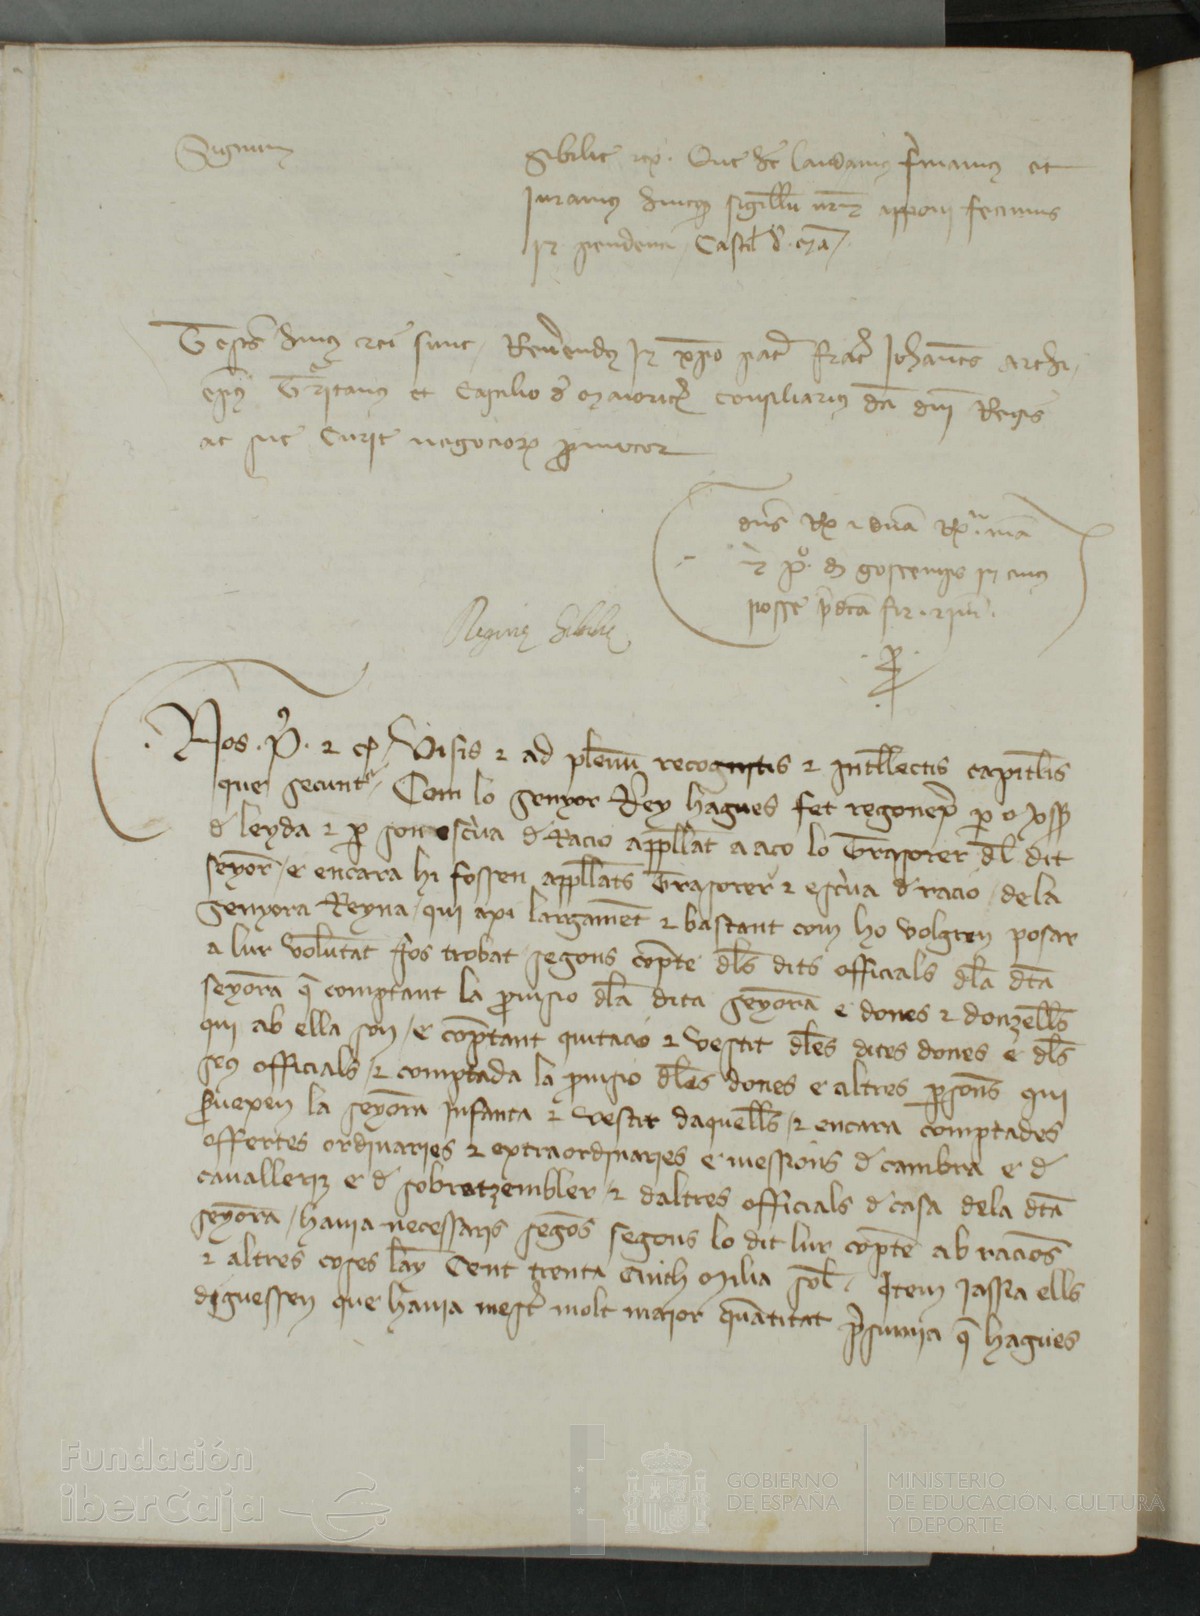 Signum
Sibilie etc. Que hec laudamus firmamus et
Juramus hincque sigillum nrm apponi fecimus
in pendenti
Testes huius rei sunt Reverendus in xpo pater frater Johannes archi
epus et consiliarius dci dni Regis
ac sue Curie negociorum promotor
dns Rex 2 dna Rna
posse
Regine Sibilie
Nos . P . 2 cet Visis 2 ad plenum recognitis 2 intellectis capitlis
que secuntr Com lo senyor Rey hagues fet regonexer p
d leyda 2 p son escriua d Racio appllat a aço lo Tresorer dl dit
seyor e encara hi fossen appllats Tresorer 2 escriua d racio dela
senyora Reyna qui axi largament 2 bastant com ho volgren posar
a lur voluntat fos trobat segons compte dls dits officials dla dta
seyora q comptant la prouisio dla dita seyora e dones 2 donzells
qui ab ella son e comptant quitacio 2 vestit dles dites dones e dls
seus officials 2 comptada la prouisio dles dones e altres psones qui
seruexen la seyora infanta 2 vestit daquells 2 encara comptades
offertes ordinaries 2 extraordinaries e messions d cambra e d
caualleriz e d sobreatzembler 2 daltres officials d casa dela dta
seyora hauia necessaris segons segons lo dit lur compte ab racions
2 altres coses lany Cent trenta Cinch Milia sol Item jassia ells
diguessen que hauia mester molt maior quantitat presumia q hagues
Fundación
iberCaja
GOBIERNO
DE ESPAÑA
MINISTERIO
DE EDUCACIÓN, CULTURA
Y DEPORTE